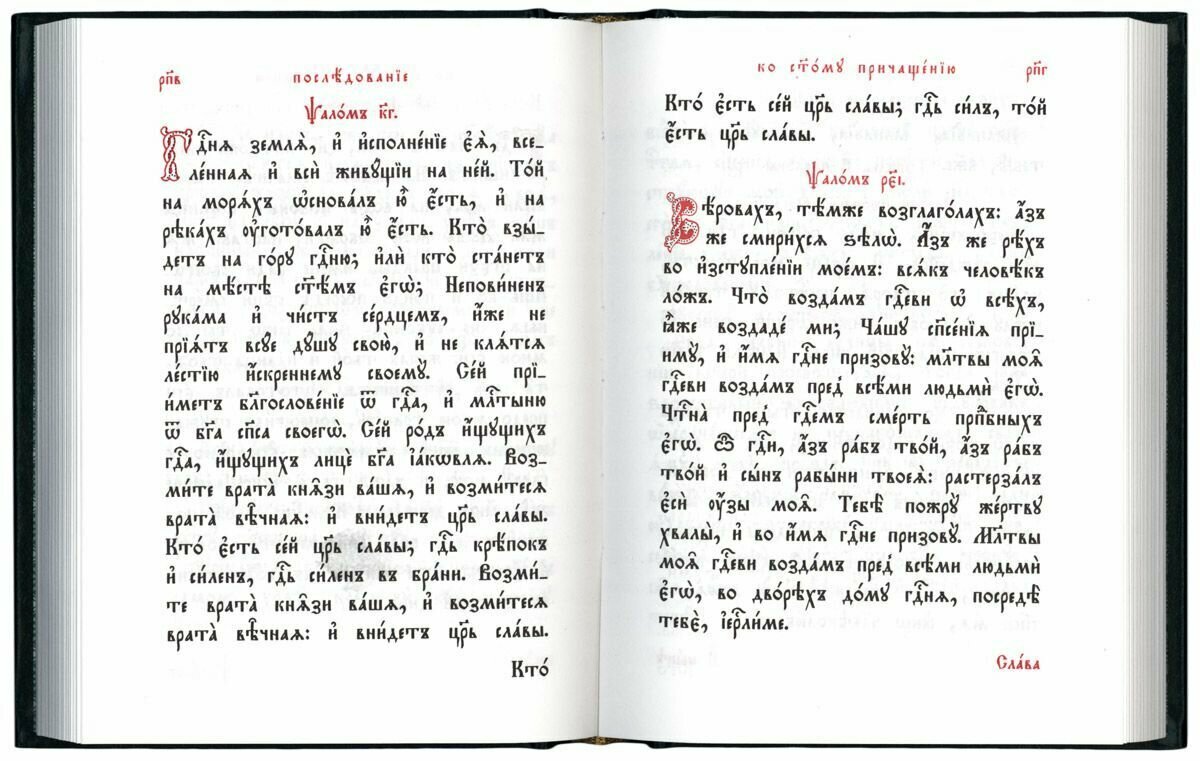 рп҃в
послѣ́дованїе
Ѱало́мъ к҃г.
Гдⷭ҇нѧ землѧ̀, и҆ и҆сполне́нїе є҆ѧ̀, все-
ле́ннаѧ и҆ всѝ живꙋ́щїи на не́й. То́й
на морѧ́хъ ѡ҆снова́лъ ю҆̀ є҆́сть, и҆ на
рѣка́хъ ᲂу҆гото́валъ ю҆̀ є҆́сть. Кто̀ взы́-
детъ на го́рꙋ гдⷭ҇ню; и҆лѝ кто̀ ста́нетъ
на мѣ́стѣ ст҃ѣ́мъ є҆гѡ̀; Непови́ненъ
рꙋка́ма и҆ чи́стъ се́рдцемъ, и҆́же не
прїѧ́тъ всꙋ́е дꙋ́шꙋ свою̀, и҆ не клѧ́тсѧ
ле́стїю и҆́скреннемꙋ своемꙋ̀. Се́й прї-
и́метъ блг҃ослове́нїе ѿ гдⷭ҇а, и҆ млⷭ҇тыню
ѿ бг҃а сп҃са своегѡ̀. Се́й ро́дъ и҆́щꙋщихъ
гдⷭ҇а, и҆́щꙋщихъ лицѐ бг҃а і҆а́кѡвлѧ. Воз-
ми́те врата̀ кнѧ̑зи ва́шѧ, и҆ возми́тесѧ
врата̀ вѣ̑чнаѧ: и҆ вни́детъ цр҃ь сла́вы.
Кто́ є҆сть се́й цр҃ь сла́вы; гдⷭ҇ь крѣ́покъ
и҆ си́ленъ, гдⷭ҇ь си́ленъ въ бра́ни. Возми́-
те врата̀ кнѧ̑зи ва́шѧ, и҆ возми́тесѧ
врата̀ вѣ̑чнаѧ: и҆ вни́детъ цр҃ь сла́вы.
Кто́
ко ст҃о́мꙋ причаще́нїю
рп҃г
Кто́ є҆сть се́й цр҃ь сла́вы; гдⷭ҇ь си́лъ, то́й
є҆́сть цр҃ь сла́вы.
Ѱало́мъ рє҃і.
Вѣ́ровахъ, тѣ́мже возглаго́лахъ: а҆́зъ
же смири́хсѧ ѕѣлѡ̀. А҆́зъ же рѣ́хъ
во и҆зстꙋпле́нїи мое́мъ: всѧ́къ человѣ́къ
ло́жъ. Что̀ возда́мъ гдⷭ҇еви ѡ҆ всѣ́хъ,
ꙗ҆̀же воздаде́ ми; Ча́шꙋ сп҃се́нїѧ прї-
имꙋ̀, и҆ и҆́мѧ гдⷭ҇не призовꙋ̀: мл҃твы моѧ̑
гдⷭ҇еви возда́мъ пред̾ всѣ́ми людьмѝ є҆гѡ̀.
Чтⷭ҇на̀ пред̾ гдⷭ҇емъ сме́рть прпⷣбныхъ
є҆гѡ̀. Ѽ гдⷭ҇и, а҆́зъ ра́бъ тво́й, а҆́зъ ра́бъ
тво́й и҆ сы́нъ рабы́ни твоеѧ̀: растерза́лъ
є҆сѝ ᲂу҆́зы моѧ̑. Тебѣ̀ пожрꙋ̀ же́ртвꙋ
хвалы̀, и҆ во и҆́мѧ гдⷭ҇не призовꙋ̀. Мл҃твы
моѧ̑ гдⷭ҇еви возда́мъ пред̾ всѣ́ми людьмѝ
є҆гѡ̀, во дво́рѣхъ до́мꙋ гдⷭ҇нѧ, посредѣ̀
тебѐ, і҆ерⷭ҇ли́ме.
Сла́ва